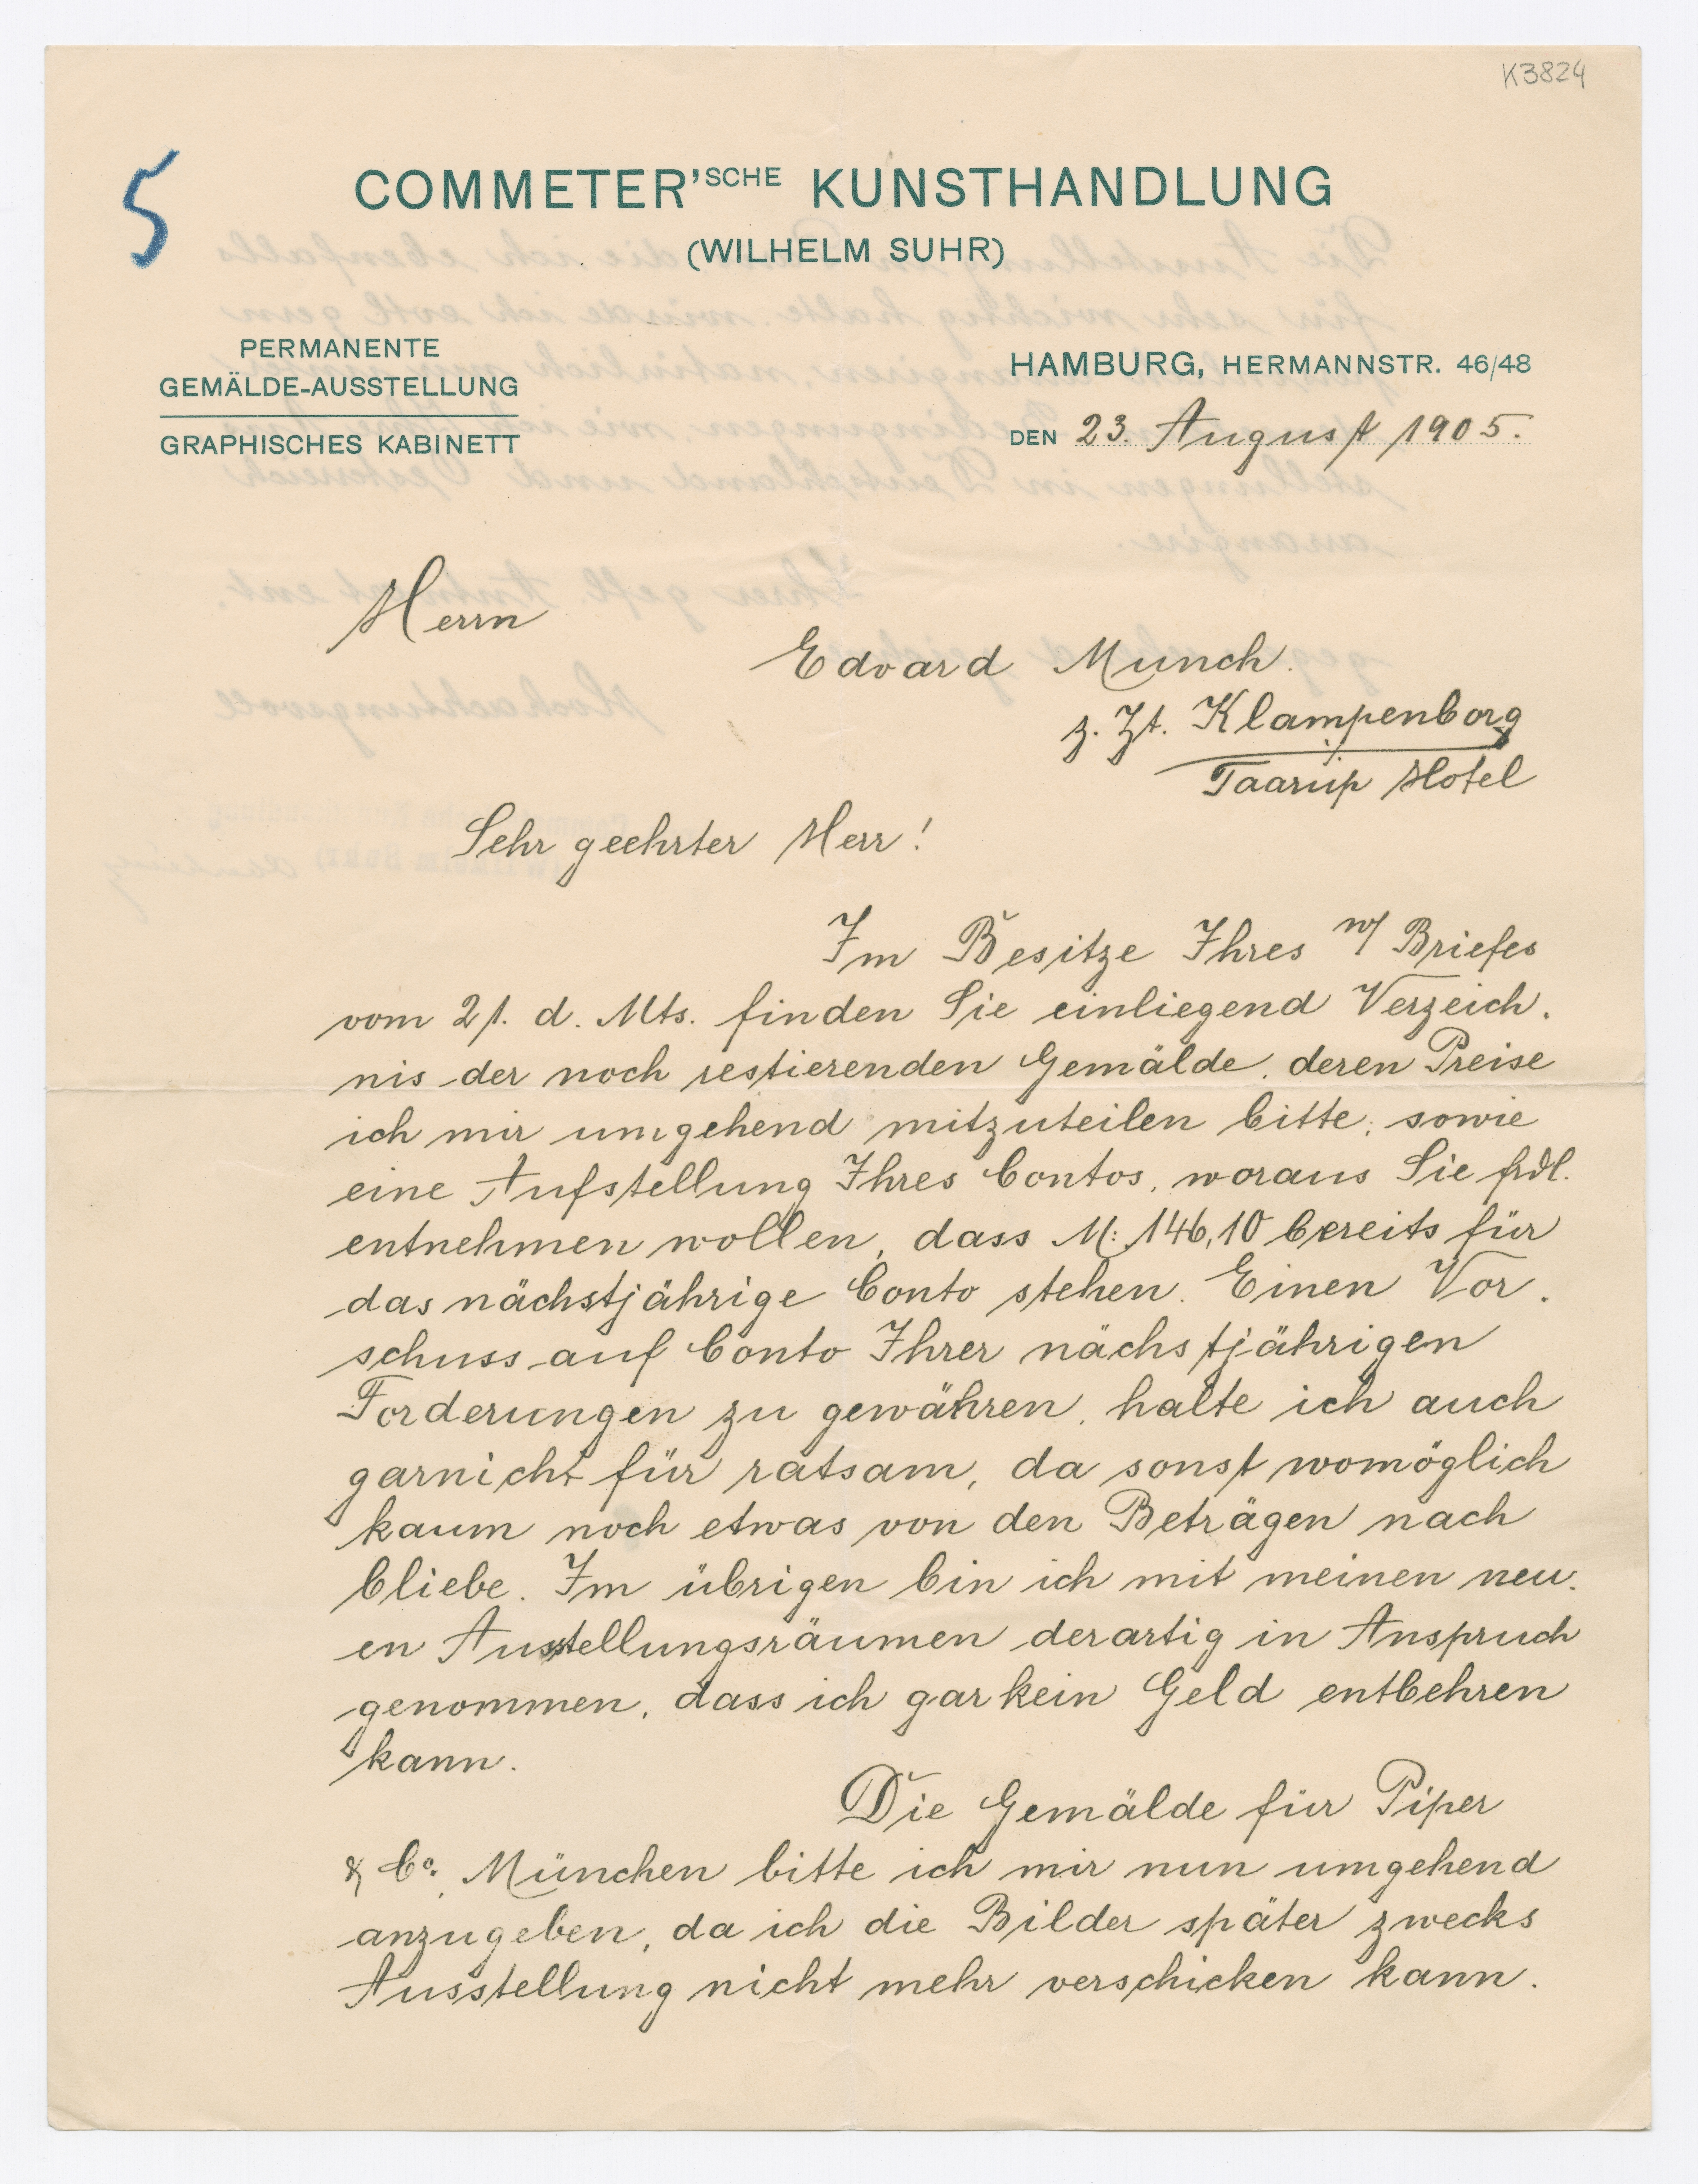 K3824
5
COMMETER'SCHE KUNSTHANDLUNG
(WILHELM SUHR)
PERMANENTE
GEMÄLDE-AUSSTELLUNG
GRAPHISCHES KABINETT
HAMBURG, HERMANNSTR. 46/48
DEN 23. August 1905.
Herrn
Edvard Munch.
z. Zt. Klampenborg
Taarup Hotel
Sehr geehrter Herr!
Im Besitze Ihres Briefes
vom 21. d. Mts. finden Sie einliegend Verzeich.
nis der noch restierenden Gemälde, deren Preise
ich mir umgehend mitzuteilen bitte, sowie
eine Aufstellung Ihres Contos, woraus Sie frdl.
entnehmen wollen, dass M: 146,10 bereits für
das nächstjährige Conto stehen. Einen Vor.
schuss auf Conto Ihrer nächstjährigen
Forderungen zu gewähren, halte ich auch
garnicht für ratsam, da sonst womöglich
kaum noch etwas von den Beträgen nach
bliebe. Im übrigen bin ich mit meinen neu.
en Ausstellungsräumen derartig in Anspruch
genommen, dass ich gar kein Geld entbehren
kann.
Die Gemälde für Piper
& Co. München bitte ich mir nun umgehend
anzugeben, da ich die Bilder später zwecks
Ausstellung nicht mehr verschicken kann.